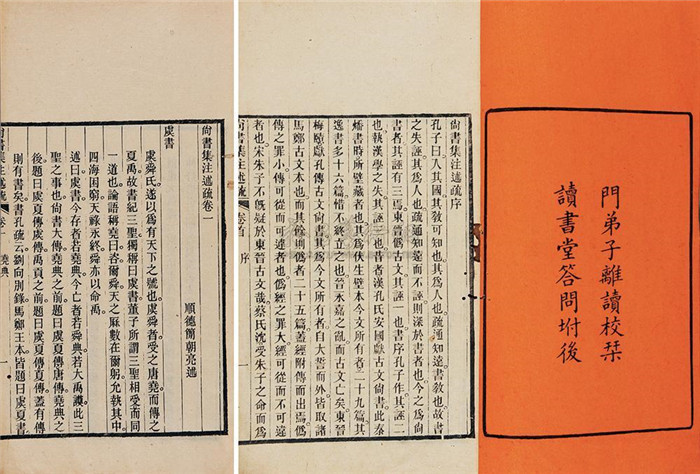 門弟子離讀校栞
讀書堂答問坿後
尚書集注述疏序
孔子曰人其國其敎可知也其爲人也疏通知遠書敎也故書
之失誣其爲人也疏通知遠而不誣則深於書者也今之爲尚
書者其誣有三焉東晉僞古文其誣一也書序孔子作其誣二
也執漢學之失其誣三也昔者漢孔氏安國獻古文尚書此秦
燔書時所壁藏者也其爲伏生壁本今文所有者二十九篇其
逸書多十六篇惜不終立之也晉永嘉之亂而古文亡矣東晉
梅賾獻孔傳古文尚書其爲今文所有者自大誓而外皆取諸
馬鄭古文本也而其餘則僞者二十五篇蓋經附傳而出焉僞
傳之罪小傳可從而可違者也僞經之罪大經可從而不可違
者也宋朱子不旣疑於東晉古文哉蔡氏沈受朱子之命而爲
尚書集注述疏 卷首 序
尚書集注述疏卷一
順德簡朝亮述
虞書
虞舜氏遂以爲有天下之號也虞舜者受之唐堯而傳之
夏禹故書紀三聖獨稱曰虞書董子所謂三聖相受而同
一道也論語稱堯曰咨爾舜天之厤數在爾躬允執其中
四海困窮天祿永終舜亦以命禹
述曰虞書今存者若堯典今亡者若舜典若大禹謨此三
聖之事也尚書大傳堯典之前題曰虞夏傳唐傳堯典之
後題曰虞夏傳虞傳禹貢之前題曰虞夏傳夏傳蓋有傳
則有書矣書孔疏云劉向別錄馬鄭王本皆題曰虞夏書
尚書集注述疏 卷一 堯典 一